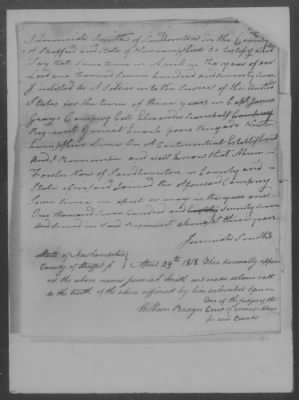 I Jeremiah Smith of Sandbornton in the County
of Strafford and State of Newhampshire do testify and
Say that some time in April in the year of our
Lord one thousand Seven hundred and seventy seven
I inlisted as A Soldier in the Service of the United
States for the term of three years in Capt James
Grays Company Coll Scammel
Regiment General poors Brigade
Line On A Continental Establishment
And I Remember and well know that Abner
Fowler Now of Sandbornton in County and
State aforesaid Joined the Aforesaid Company
Some time in april or may in the year
One thousand Seven hundred and seventy seven
And served in said Regiment three years
Jeremiah Smith
State of Newhampshire
County of Strafford ss April 29th 1818 Then personally appeared
the above named Jeremiah Smith and made solemn oath
to the truth of the above affidavit by him subscribed before me
William Badger One of the judges of the
Court of common pleas
for said County